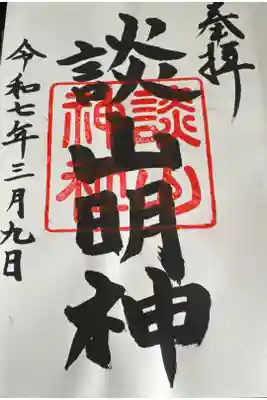 奉拝
談山明神
談山神社
令和七年三月九日